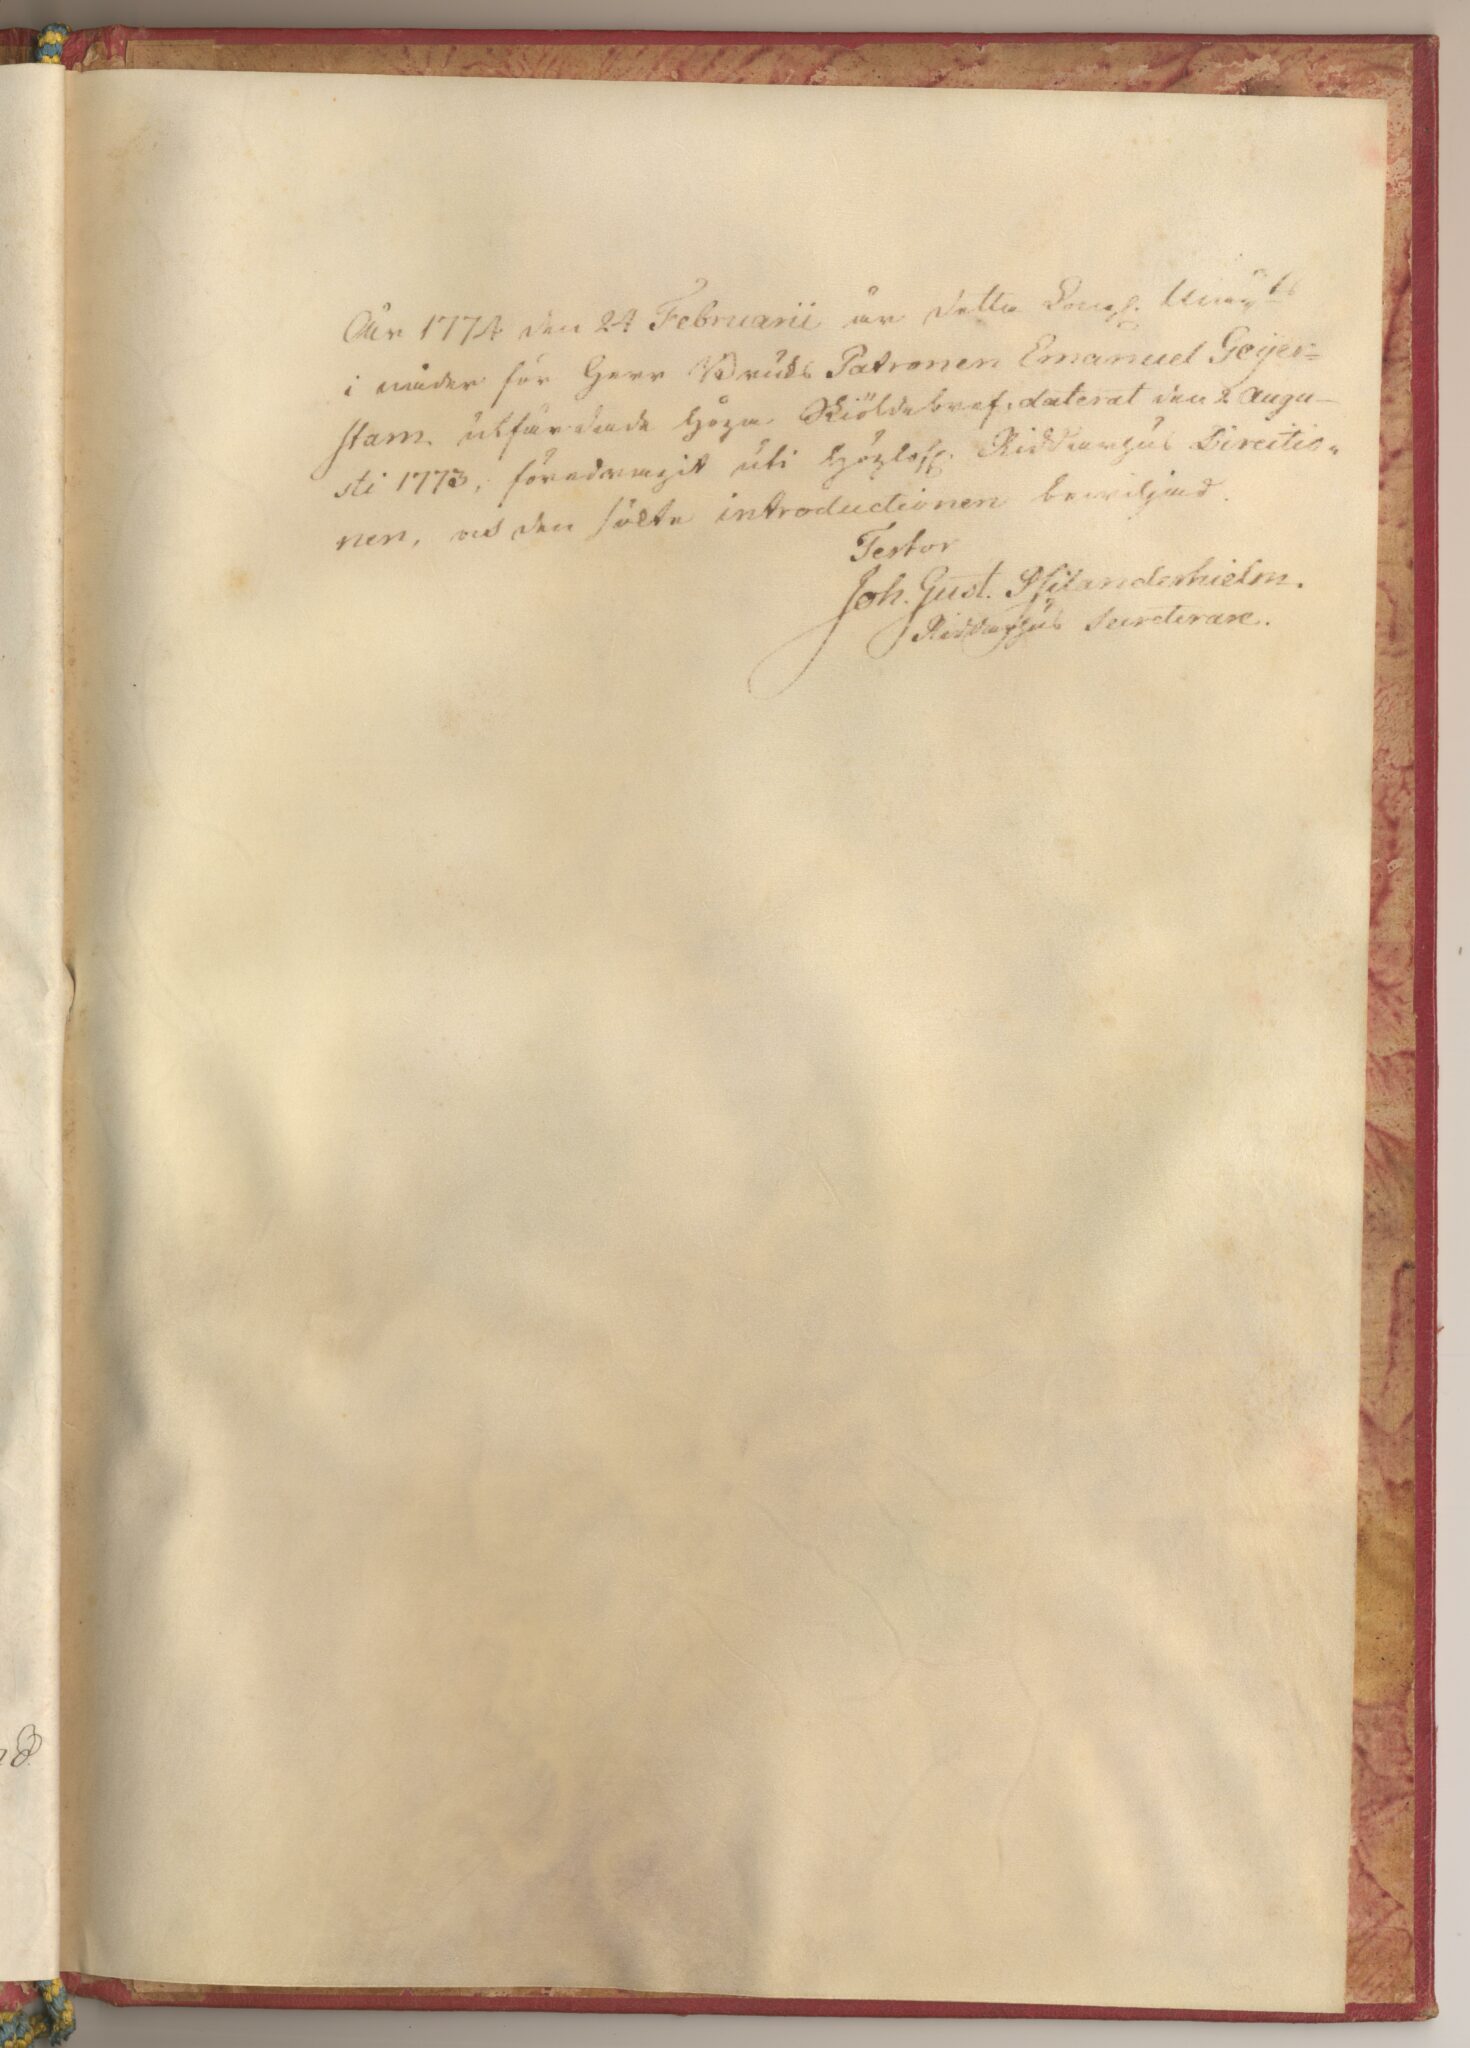 Åhr 1774 den 24 Februarii är detta Kongl. Maij:ts
i nåder för Herr Bruks Patronen Emanuel Geijer=
stam utfärdade höga Skiöldebref, daterat den 2 Augu-
sti 1773, föredragit uti Höglofl. Riddarhus Directio-
nen, och den sökta introductionen bewiljad.
Testor
Joh. Gust. Psilanderhielm.
Riddarhus Secreterare.